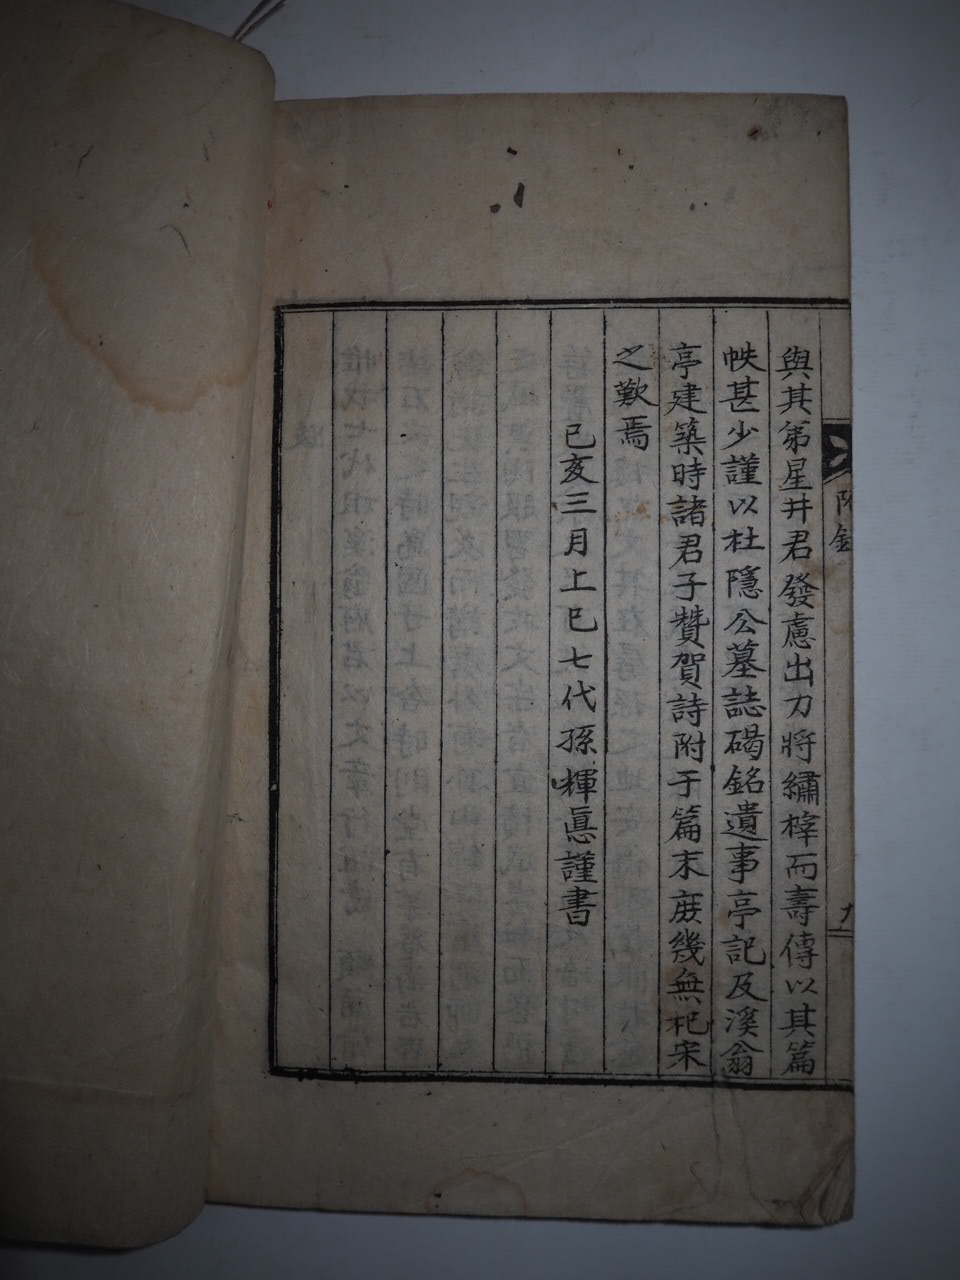 與其弟星井君發慮出力將繡榟而壽傳以其篇
帙甚少謹以杜隱公墓誌碣銘遺事亭記及溪翁
亭建築時諸君子贊賀詩附于篇末庶幾無杞宋
之歎焉
己亥三月上巳七代孫輝眞謹書
附錄